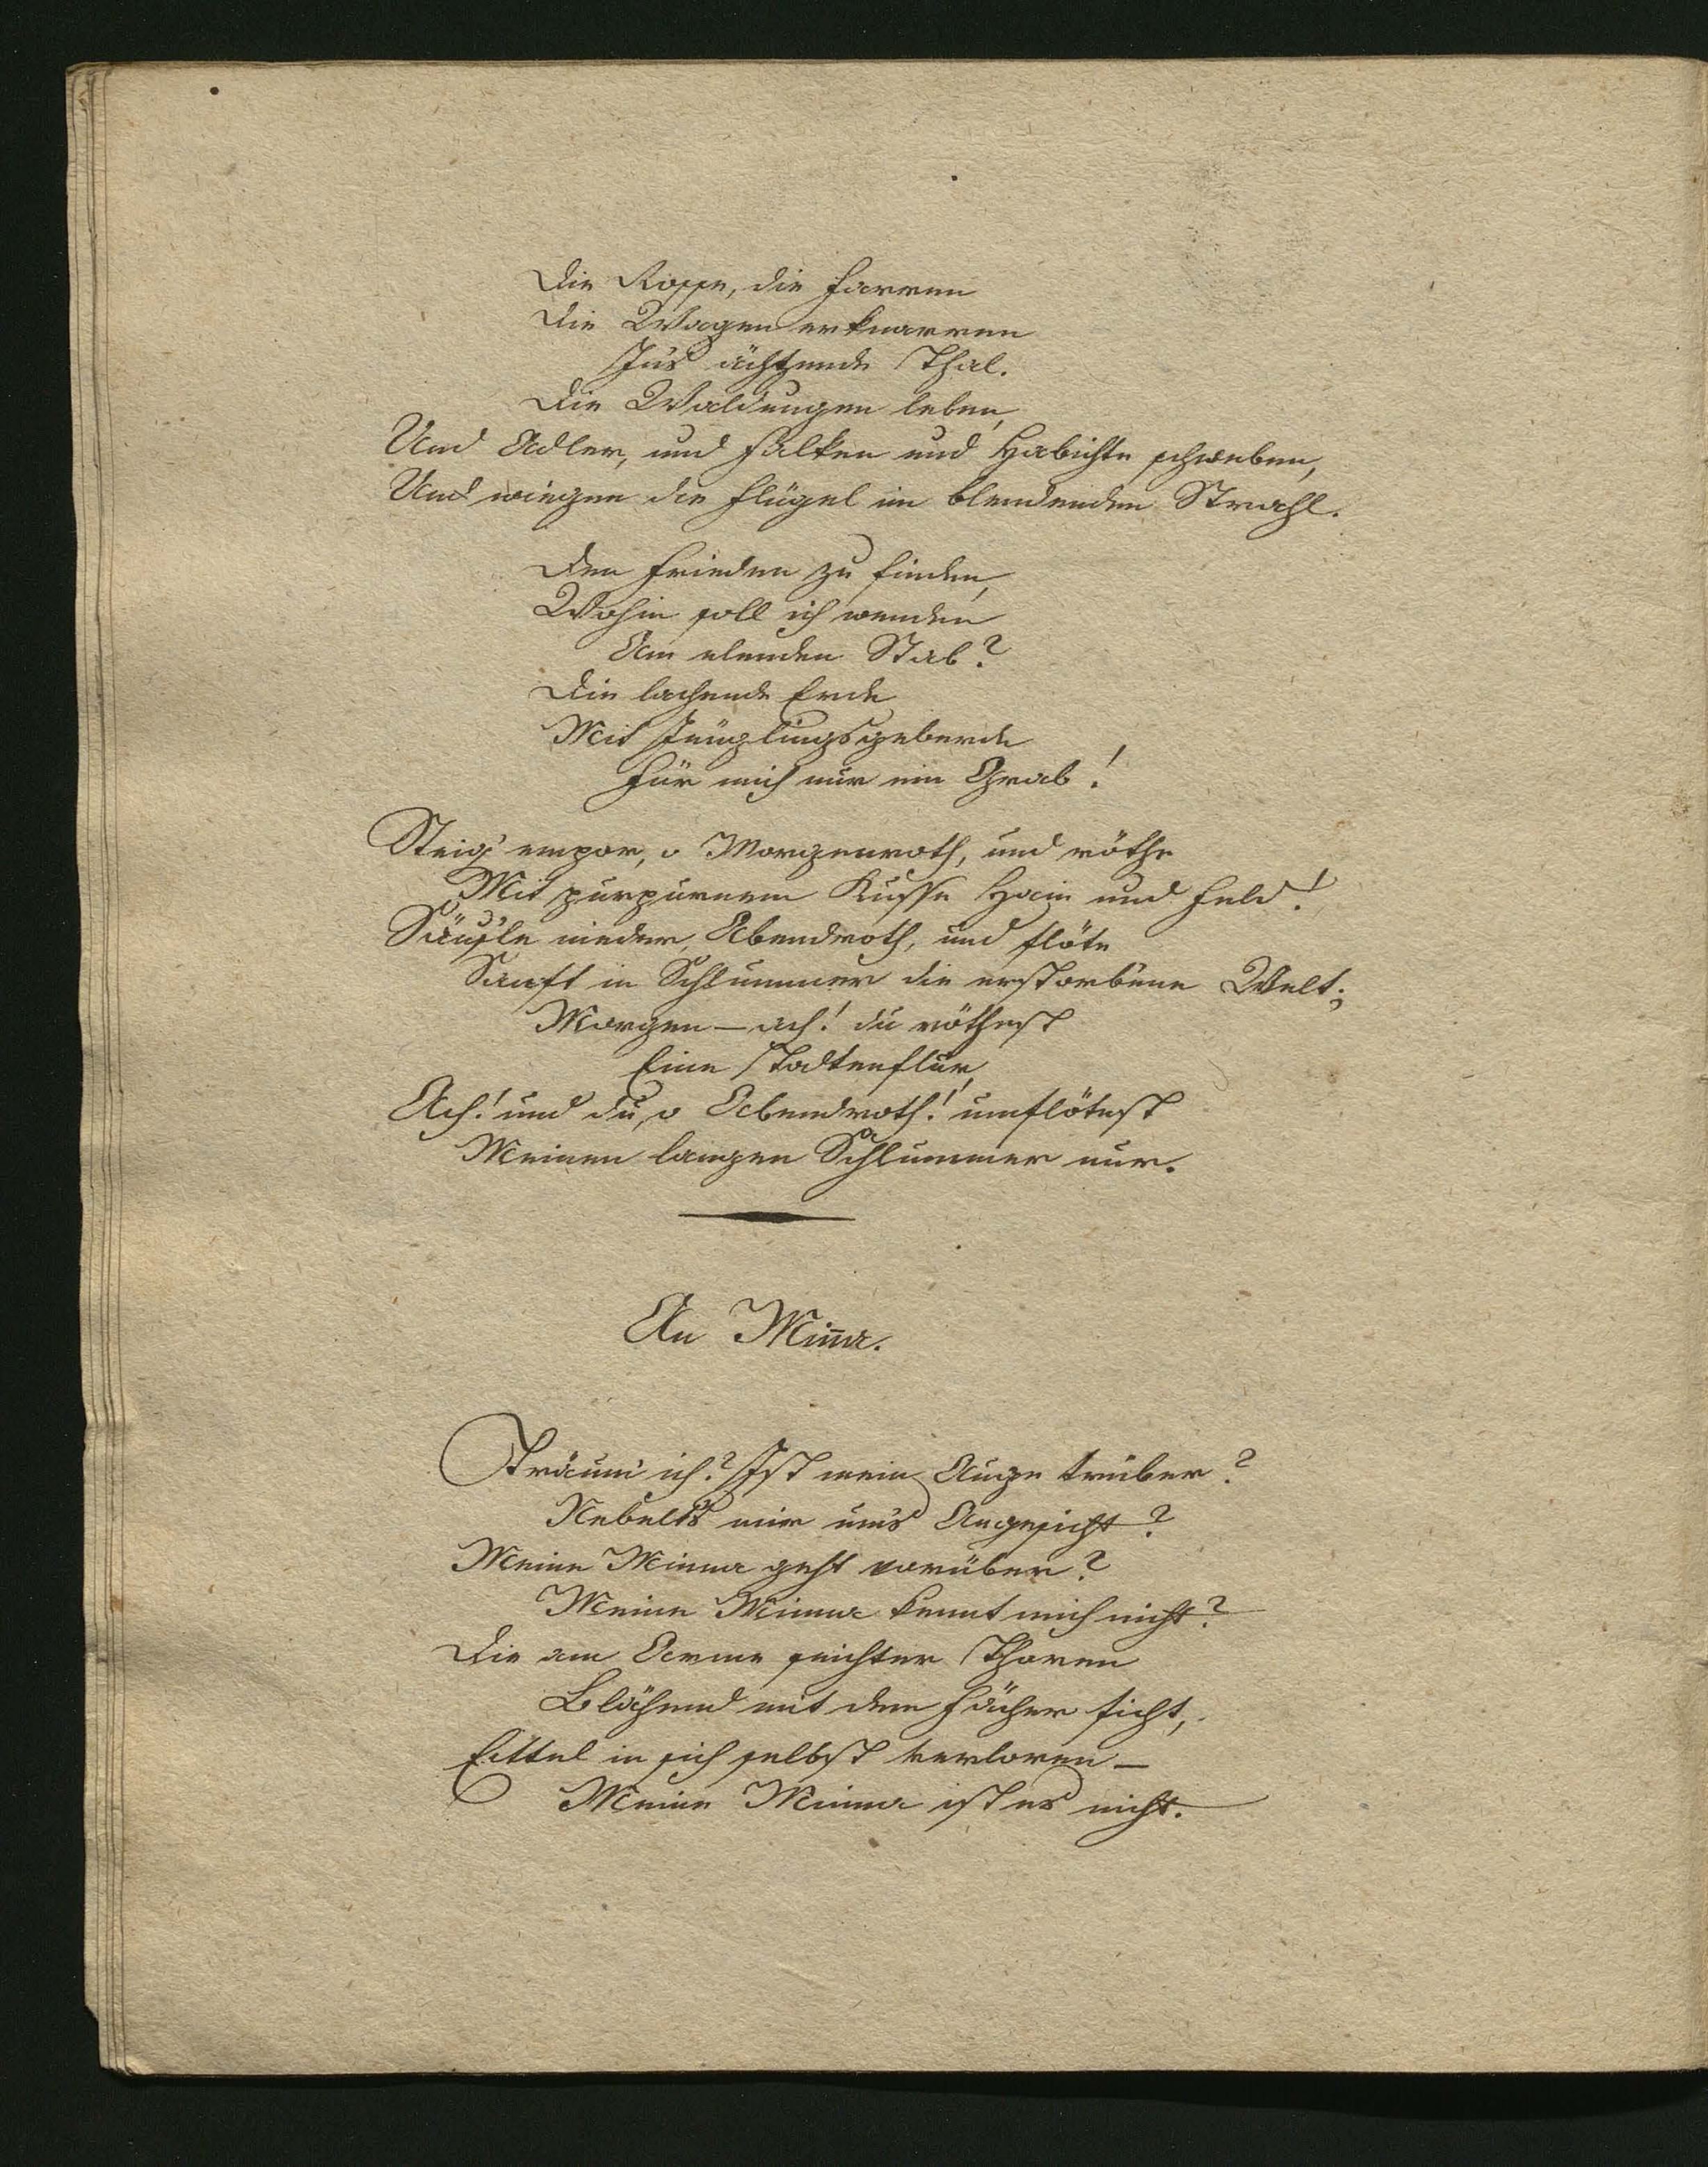 Die Rosse, die Farren
Die Wagen erknarren
Ins ächzende Thal.
Die Waldungen leben,
Und Adler, und Falken und Habichte schweben,
Und wiegen die Flügel im blendenden Strahl.
Den Frieden zu finden,
Wohin soll ich wenden
Am elenden Stab?
Die lachende Erde
Mit Jünglingsgeberde
Für mich nur ein Grab!
Steig' empor, o Morgenroth, und röthe
Mit purpurnem Kusse Hain und Feld!
Säus'le nieder, Abendroth, und flöte
Sanft in Schlummer die erstorb'ene Welt;
Morgen – ach! du röthest
Eine Todtenflur,
Ach! und du, o Abendroth! umflötest
Meinen langen Schlummer nur.
An Min̄a.
Träum' ich? Ist mein Auge trüber?
Nebelt's mir um's Angesicht?
Meine Minna geht vorüber?
Meine Minna kennt mich nicht?
Die am Arme seichter Thoren
Blähend mit dem Fächer ficht,
Eittel in sich selbst verloren –
Meine Minna ist es nicht.